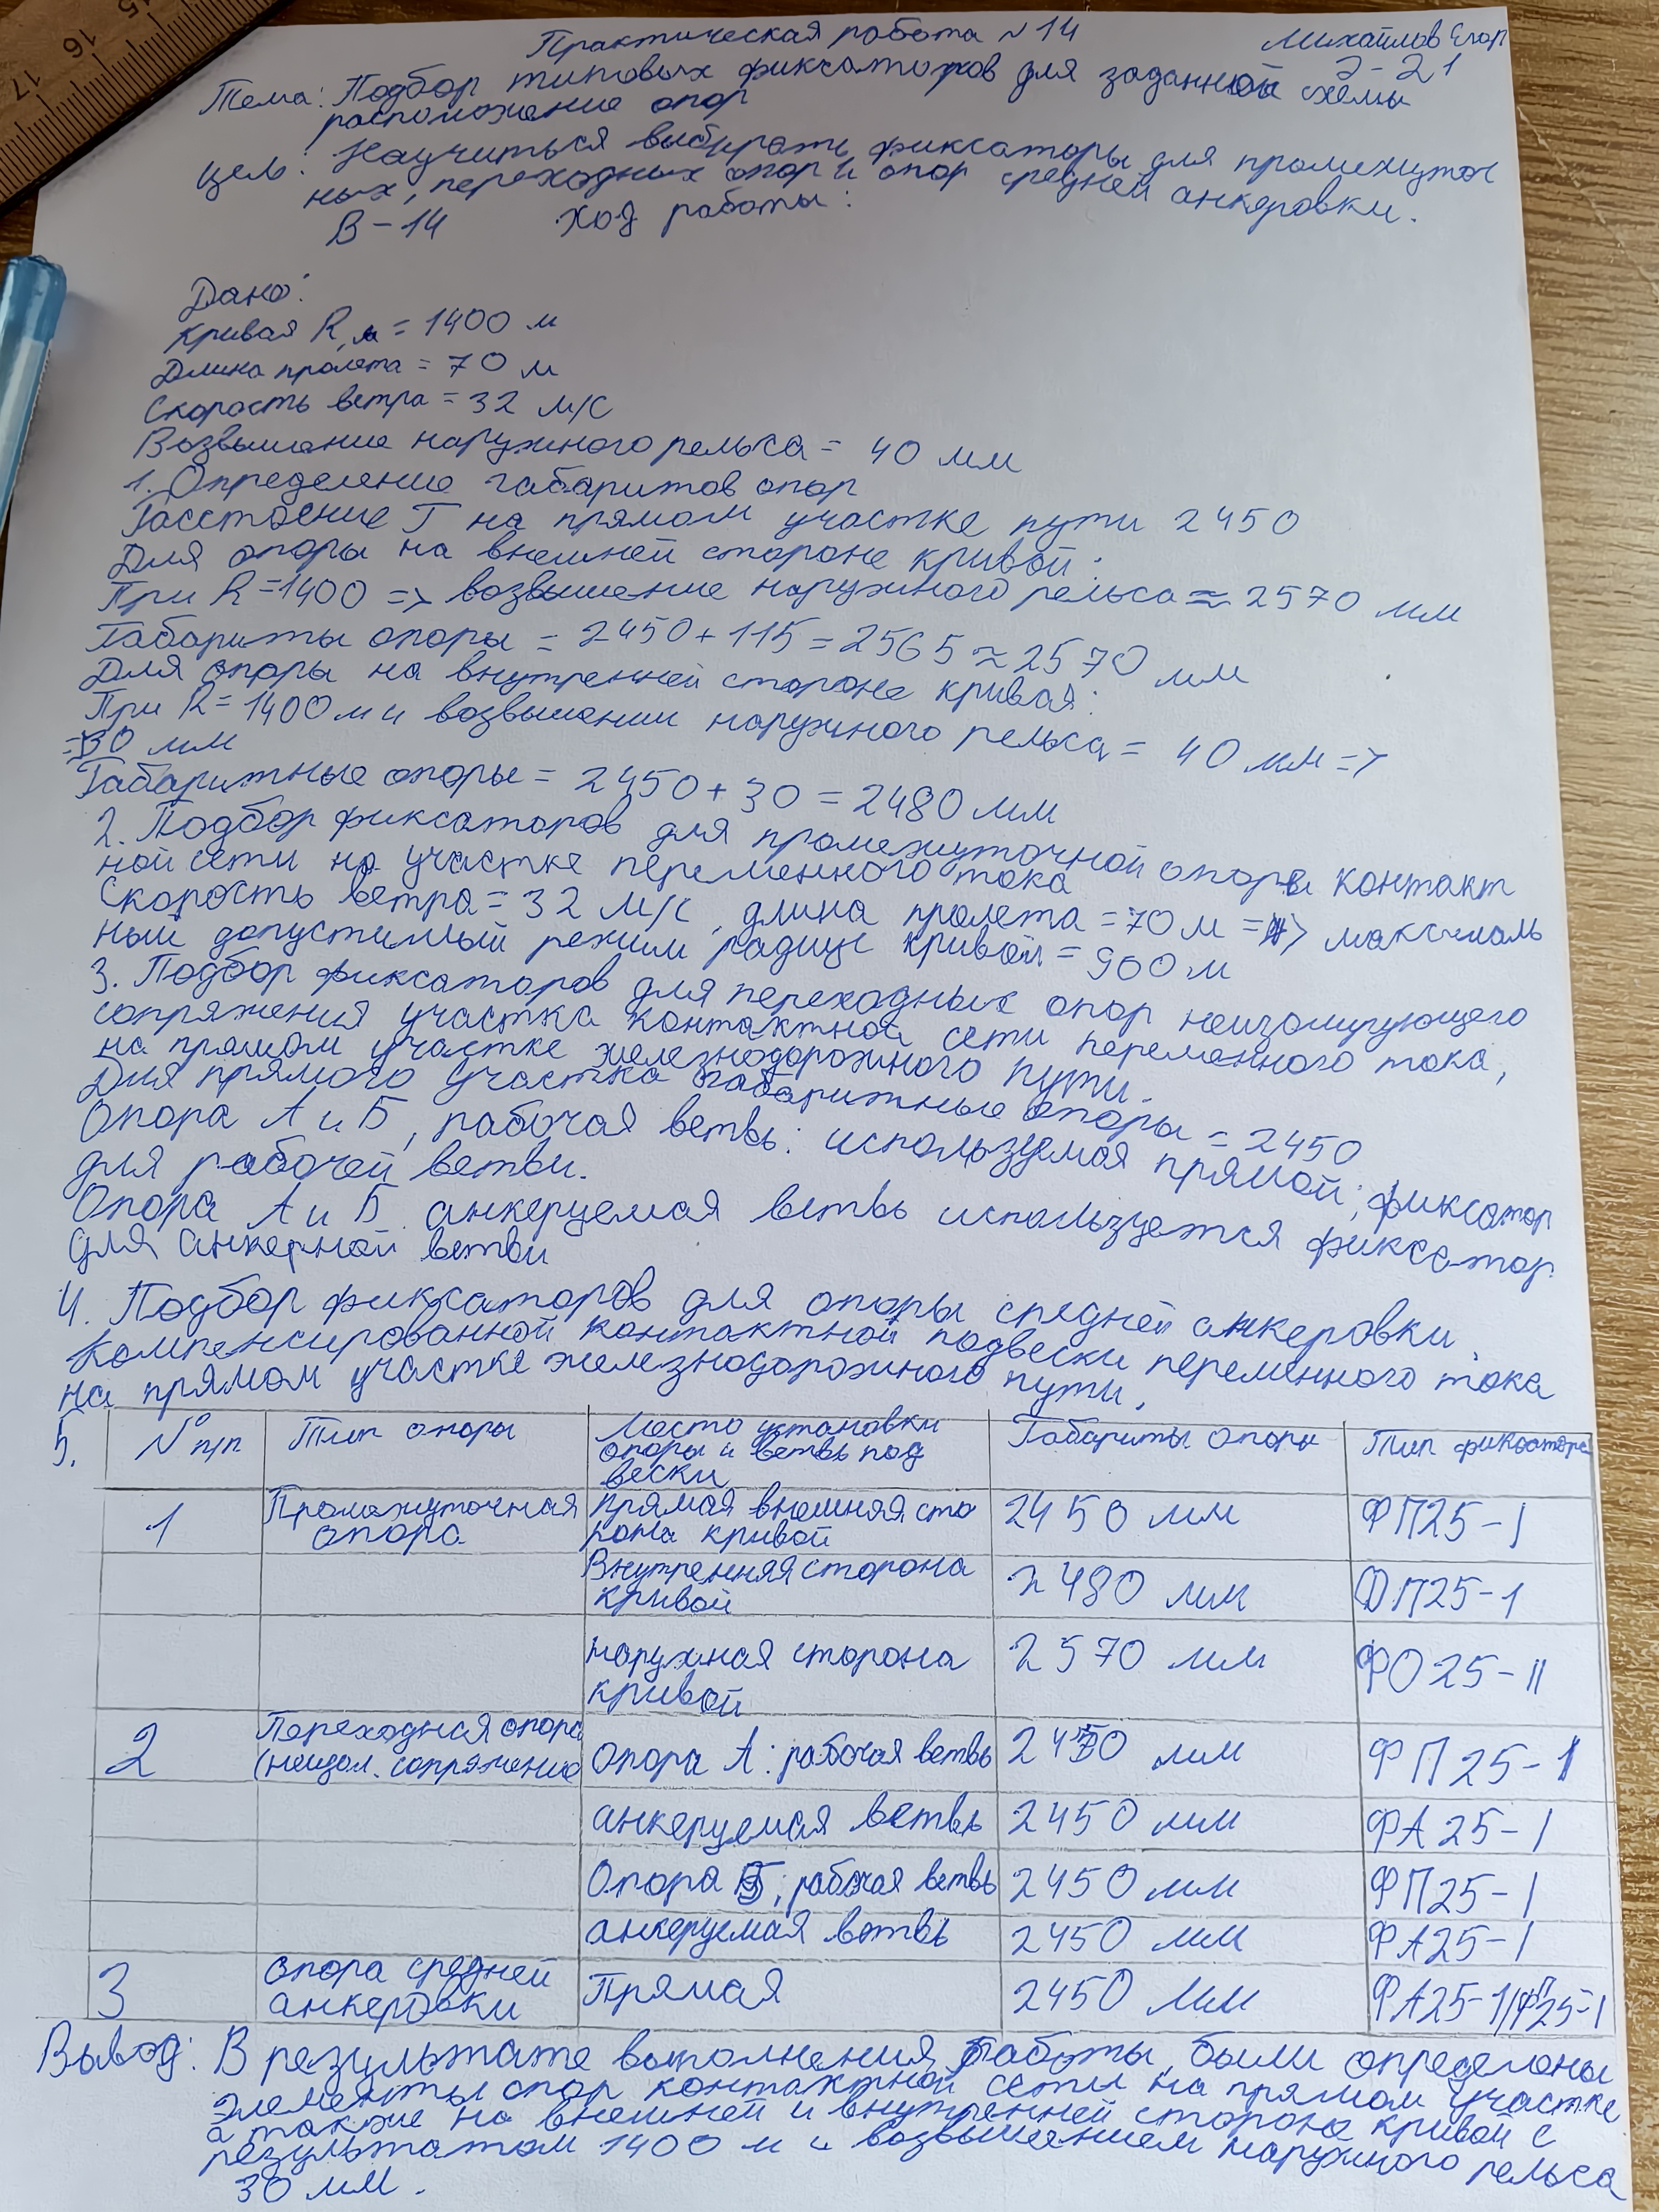 Практическая работа №14
Михайлов Егор
Э-21
Тема: Подбор типовых фиксаторов для заданной схемы
расположение опор
Цель: Научиться выбирать фиксаторы для промежуточ
ных, переходных опор и опор средней анкеровки.
В-14 Ход работы:
Дано:
Кривая R, м = 1400 м
Длина пролета = 70 м
Скорость ветра = 32 м/с
Возвышение наружного рельса = 40 мм
1. Определение габаритов опор
Расстояние Г на прямом участке пути 2450
Для опоры на внешней стороне кривой:
При R=1400 => возвышение наружного рельса ≈ 2570 мм
Габариты опоры = 2450+115=2565≈2570 мм
Для опоры на внутренней стороне кривая:
При R=1400 м и возвышении наружного рельса = 40 мм =>
=30 мм
Габаритные опоры = 2450+30=2480 мм
2. Подбор фиксаторов для промежуточной опоры контакт
ной сети на участке переменного тока
Скорость ветра = 32 м/с, длина пролета = 70 м => максималь
ный допустимый режим радиус кривой = 900 м
3. Подбор фиксаторов для переходных опор неизолирующего
сопряжения участка контактной сети переменного тока,
на прямом участке железнодорожного пути.
Для прямого участка габаритные опоры = 2450
Опора А и Б, рабочая ветвь: используемая прямой; фиксатор
для рабочей ветви.
Опора А и Б анкеруемая ветвь используется фиксатор
для анкерной ветви
4. Подбор фиксаторов для опоры средней анкеровки
компенсированной контактной подвески переменного тока
на прямом участке железнодорожного пути,
5. № п/п Тип опоры Место установки опоры и ветвь под вески Габариты опоры Тип фиксатора
1 Промежуточная опора прямая внешняя сто рона кривой 2450 мм ФП25-I
Внутренняя сторона кривой 2480 мм ФП25-1
наружная сторона кривой 2570 мм ФО25-II
2 Переходная опора (неизол. сопряжение опора А: рабочая ветвь 2450 мм ФП25-1
анкеруемая ветвь 2450 мм ФА25-1
Опора Б; рабочая ветвь 2450 мм ФП25-1
анкеруемая ветвь 2450 мм ФА25-1
3 опора средней анкеровки Прямая 2450 мм ФА25-1/ФП25-1
Вывод: В результате выполнения работы, были определены
элементы опор контактной сети на прямом участке
а также на внешней и внутренней стороне кривой с
результатом 1400 м и возвышением наружного рельса
30 мм.